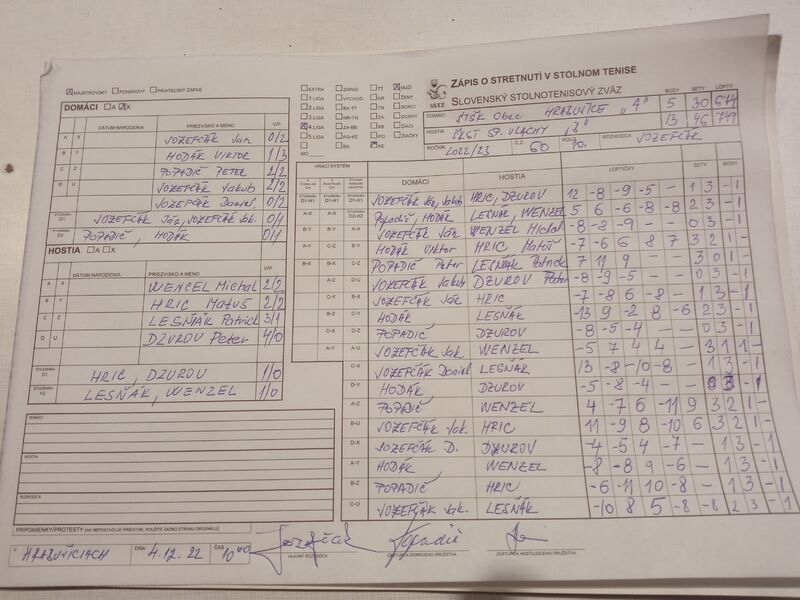 ZÁPIS O STRETNUTÍ V STOLNOM TENISE
SLOVENSKÝ STOLNOTENISOVÝ ZVÄZ
SSTZ
MAJSTROVSKÝ POHÁROVÝ PRIATEĽSKÝ ZÁPAS
EXTRA ZÁPAD TT MUŽI
1 LIGA VÝCHOD NR ŽENY
2 LIGA BA-TT TN DORCI
3 LIGA NR-TN ZA DORKY
4 LIGA ZA-BB BB ŽIACI
5 LIGA PO-KE PO ŽIAČKY
BA KE
MO
BODY SETY LOPTY
DOMÁCI STŠK Obec HRABUŠICE "A" 5 30 674
HOSTIA ŠKST SP. VLACHY "B" 13 46 749
ROČNÍK 2022/23 Č.Z. 60 KOLO 10. ROZHODCA JOZEFČÁK
DOMÁCI A X
DÁTUM NARODENIA PRIEZVISKO A MENO V/P
A X JOZEFČÁK Ján 0/2
B Y HODÁK VIKTOR 1/3
C Z POPADIČ PETER 2/2
D U JOZEFČÁK Jakub 2/2
JOZEFČÁK Daniel 0/2
ŠTVORHRA D1 JOZEFČÁK Ján, JOZEFČÁK Jak. 0/1
ŠTVORHRA D2 POPADIČ, HODÁK 0/1
HOSTIA A X
DÁTUM NARODENIA PRIEZVISKO A MENO V/P
A X WENCEL Michal 2/2
B Y HRIC Matúš 2/2
C Z LESŇÁK Patrick 3/1
D U DZUROV Peter 4/0
ŠTVORHRA HRIC, DZUROV 1/0
ŠTVORHRA H2 LESŇÁK, WENZEL 1/0
HRACÍ SYSTÉM DOMÁCI HOSTIA LOPTIČKY SETY BODY
JOZEFČÁK Ján, Jakub HRIC, DZUROV 12 -8 -9 -5 - 1 3 - 1
Popadič, HODÁK LESŇÁK, WENZEL 5 6 -6 -8 -8 2 3 - 1
JOZEFČÁK Ján WENZEL Michal -8 -8 -9 - - 0 3 - 1
HODÁK Viktor HRIC Matúš -7 -6 6 8 7 3 2 1 -
POPADIČ Peter LESŇÁK Patrick 7 11 9 - - 3 0 1 -
JOZEFČÁK Jakub DZUROV Peter -8 -9 -5 - - 0 3 - 1
JOZEFČÁK Ján HRIC -7 -8 6 -8 - 1 3 - 1
HODÁK LESŇÁK -13 9 -2 8 -6 2 3 - 1
POPADIČ DZUROV -8 -5 -4 - - 0 3 - 1
JOZEFČÁK Jak. WENZEL -5 7 4 4 - 3 1 1 -
JOZEFČÁK Daniel LESŇÁK 13 -8 -10 -8 - 1 3 - 1
HODÁK DZUROV -5 -8 -4 - - 0 3 - 1
POPADIČ WENZEL 4 -7 6 -11 9 3 2 1 -
JOZEFČÁK Jak. HRIC 11 -9 8 -10 6 3 2 1 -
JOZEFČÁK D. DZUROV -4 -5 4 -7 - 1 3 - 1
HODÁK WENZEL -8 -8 9 -6 - 1 3 - 1
POPADIČ HRIC -6 -11 10 -8 - 1 3 - 1
JOZEFČÁK Jak. LESŇÁK -10 8 5 -8 -8 2 3 - 1
DOMÁCI
HOSTIA
ROZHODCA
PRIPOMIENKY/PROTESTY (AK NEPOSTAČUJE PRIESTOR, POUŽITE ZADNÚ STRANU ORIGINÁLU)
V HRABUŠICIACH DŇA 4.12.22 ČAS 10:00
HLAVNÝ ROZHODCA ZÁSTUPCA DOMÁCEHO DRUŽSTVA ZÁSTUPCA HOSŤUJÚCEHO DRUŽSTVA